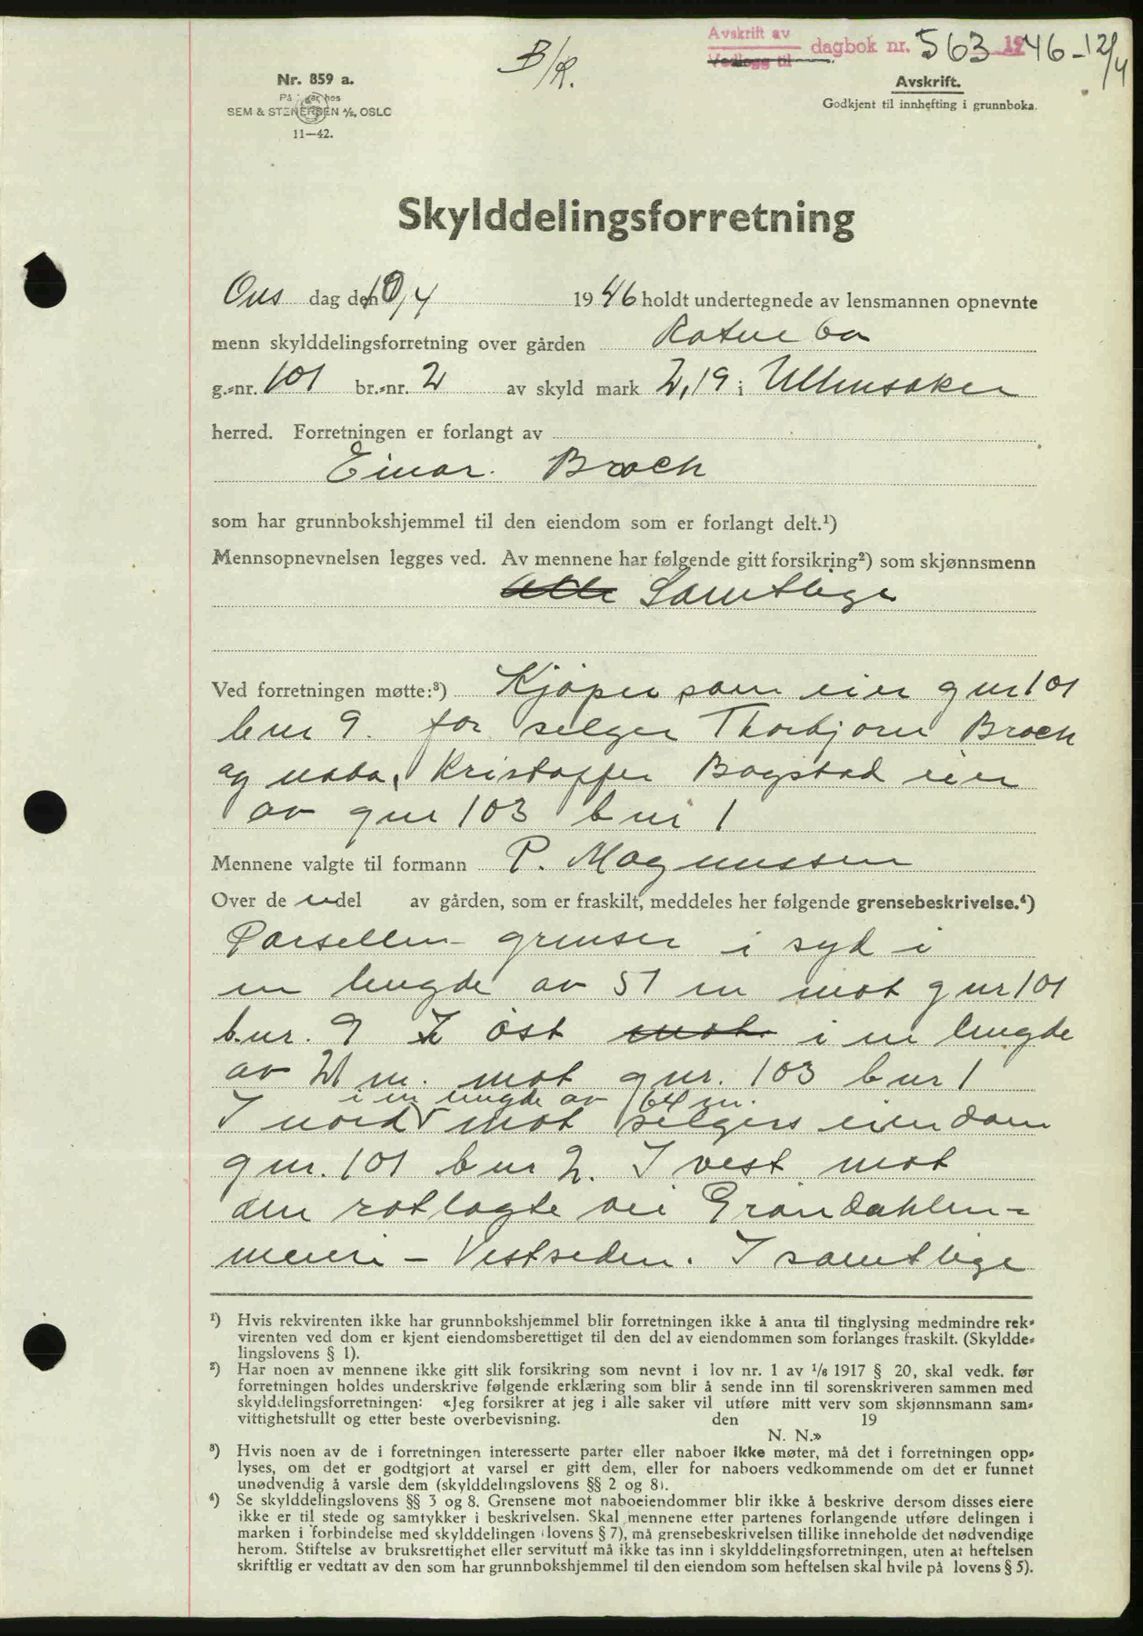 Avskrift av
Vedlegg til dagbok nr. 563 1946-12/4
B/R.
Nr. 859 a.
SEM & STENERSEN A/S, OSLO
11—42.
Avskrift.
Godkjent til innhefting i grunnboka.
Skylddelingsforretning
Ons dag den 10/4 1946 holdt undertegnede av lensmannen opnevnte
menn skylddelingsforretning over gården
g.-nr. 101 br.-nr. 2 av skyld mark 2,19 i Ullensaker
herred. Forretningen er forlangt av
Einar Broch
som har grunnbokshjemmel til den eiendom som er forlangt delt.¹)
Mennsopnevnelsen legges ved. Av mennene har følgende gitt forsikring²) som skjønnsmenn
Alle Samtlige
Ved forretningen møtte:³) Kjøper som eier gnr 101
bnr 9. for selger Thorbjørn Broch
og nabo, Kristoffer Bogstad eier
av gnr 103 bnr 1
Mennene valgte til formann P. Magnussen
Over de n del av gården, som er fraskilt, meddeles her følgende grensebeskrivelse.⁴)
Parsellen grenser i syd i
en lengde av 51 m mot gnr 101
b.nr. 9 I øst mot i en lengde
av 21 m. mot gnr. 103 bnr 1
i en lengde av 64 m.
I nord mot selgers eiendom
gnr. 101 bnr 2. I vest mot
den rotlagte vei Grøndahlen-
meieri - Vestsiden. I samtlige
¹) Hvis rekvirenten ikke har grunnbokshjemmel blir forretningen ikke å anta til tinglysing medmindre rek-
virenten ved dom er kjent eiendomsberettiget til den del av eiendommen som forlanges fraskilt. (Skyldde-
lingslovens § 1).
²) Har noen av mennene ikke gitt slik forsikring som nevnt i lov nr. 1 av 1/6 1917 § 20, skal vedk. før
forretningen holdes underskrive følgende erklæring som blir å sende inn til sorenskriveren sammen med
skylddelingsforretningen: «Jeg forsikrer at jeg i alle saker vil utføre mitt verv som skjønnsmann sam-
vittighetsfullt og etter beste overbevisning. den 19
N. N.»
³) Hvis noen av de i forretningen interesserte parter eller naboer ikke møter, må det i forretningen opp-
lyses, om det er godtgjort at varsel er gitt dem, eller for naboers vedkommende om det er funnet
unødvendig å varsle dem (skylddelingslovens §§ 2 og 8).
⁴) Se skylddelingslovens §§ 3 og 8. Grensene mot naboeiendommer blir ikke å beskrive dersom disses eiere
ikke er til stede og samtykker i beskrivelsen. Skal mennene etter partenes forlangende utføre delingen i
marken i forbindelse med skylddelingen (lovens § 7), må grensebeskrivelsen tillike inneholde det nødvendige
herom. Stiftelse av bruksrettighet eller servitutt må ikke tas inn i skylddelingsforretningen, uten at heftelsen
skriftlig er vedtatt av den som har grunnbokshjemmel til den eiendom som heftelsen skal hvile på lovens § 5).